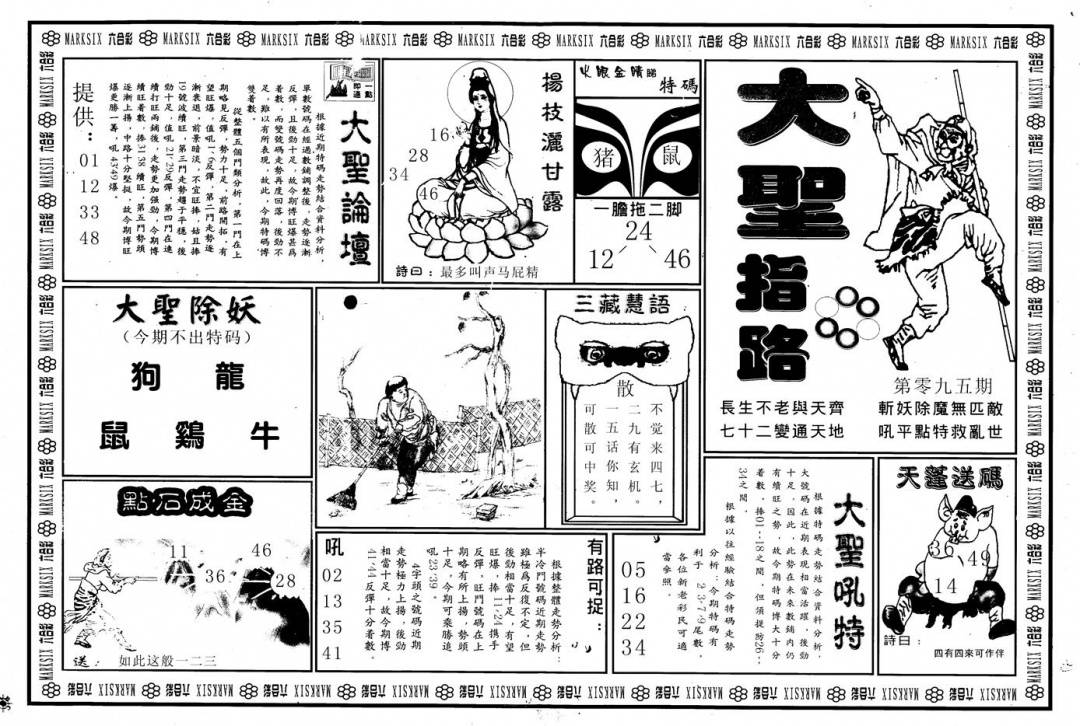 MARKSIX 六合彩 MARKSIX 六合彩 MARKSIX 六合彩 MARKSIX 六合彩 MARKSIX 六合彩 MARKSIX 六合彩 MARKSIX 六合彩 MARKSIX 六合彩 MARKSIX 六合彩 MARKSIX 六合彩
大聖指路
第零九五期
長生不老與天齊
七十二變通天地
斬妖除魔無匹敵
吼平點特救亂世
火眼金睛睇
特碼
猪
鼠
一膽拖二脚
24
12
46
楊枝灑甘露
16
28
34
46
詩曰：最多叫声马屁精
一點即通
大聖論壇
根據近期特碼走勢結合資料分析，
單數號碼在經過數鋪調整後，走勢逐漸
反彈，且後勁十足，故今期博旺爆甚爲
着數，而變號碼走勢再度回落，後勁不
足，雖以有所表現，故此，今期特碼博
雙着數。
從整體五個門類分析，第一門在上
期略見反彈，勢力十足，前路開拓，有
望旺爆，值吼1-6反彈，第二門走勢逐
漸衰退，前景暗淡，不宜旺捧，姑且捧
19號波續旺，第三門走勢趨于平穩，後
勁十足，值吼21-29反彈，第四門在連
續打旺兩鋪後，走勢更加强勁，今期博
續旺着數，捧31-38續旺，第五門勢頭
逐漸上揚，中路十分堅挺，故今期博旺
爆更勝一籌，吼43-49爆。
提供：
01
12
33
48
大聖除妖
（今期不出特码）
狗 龍
鼠 鷄 牛
三藏慧語
散
不觉来四七，
二九有玄机。
一五话你知，
可散可中奖。
點石成金
11
46
36
28
送：如此这般一二三
有路可捉：
根據整體走勢分析：
半冷門號碼近期走勢
雖極爲反復不定，但
後勁相當十足，有望
旺爆，捧11-24携手
反彈，旺門號碼在上
期略有所上揚，勢頭
十足，今期可乘勝追
吼23-39。
4字頭之號碼近期
走勢極力上揚，後勁
相當十足，故今期博
41-44反彈十分着數。
吼
02
13
35
41
大聖吼特
根據特碼走勢結合資料分析，
大號碼在近期表現相當活躍，後勁
十足，因此，此勢在未來數鋪內仍
有續旺之勢，故今期特碼博大十分
着數，捧01--18之間，但須提防26--
34之間。
根據以往經驗結合特碼走勢
分析：今期特碼有
利于2·3·7·9尾數，
各位新老彩民可適
當參照。
05
16
22
34
天蓬送碼
36
49
14
詩曰：
四有四來可作伴